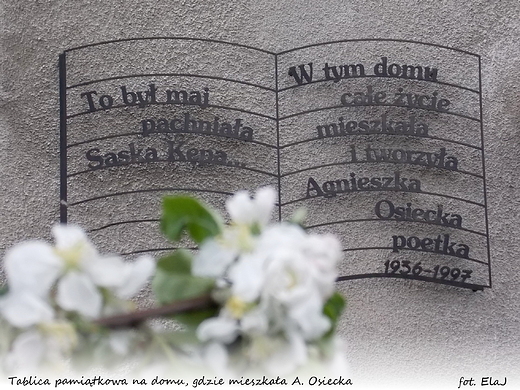 To był maj
pachniała
Saska Kępa...
W tym domu
całe życie
mieszkała
i tworzyła
Agnieszka
Osiecka
poetka
1936-1997
Tablica pamiątkowa na domu, gdzie mieszkała A. Osiecka
fot. ElaJ